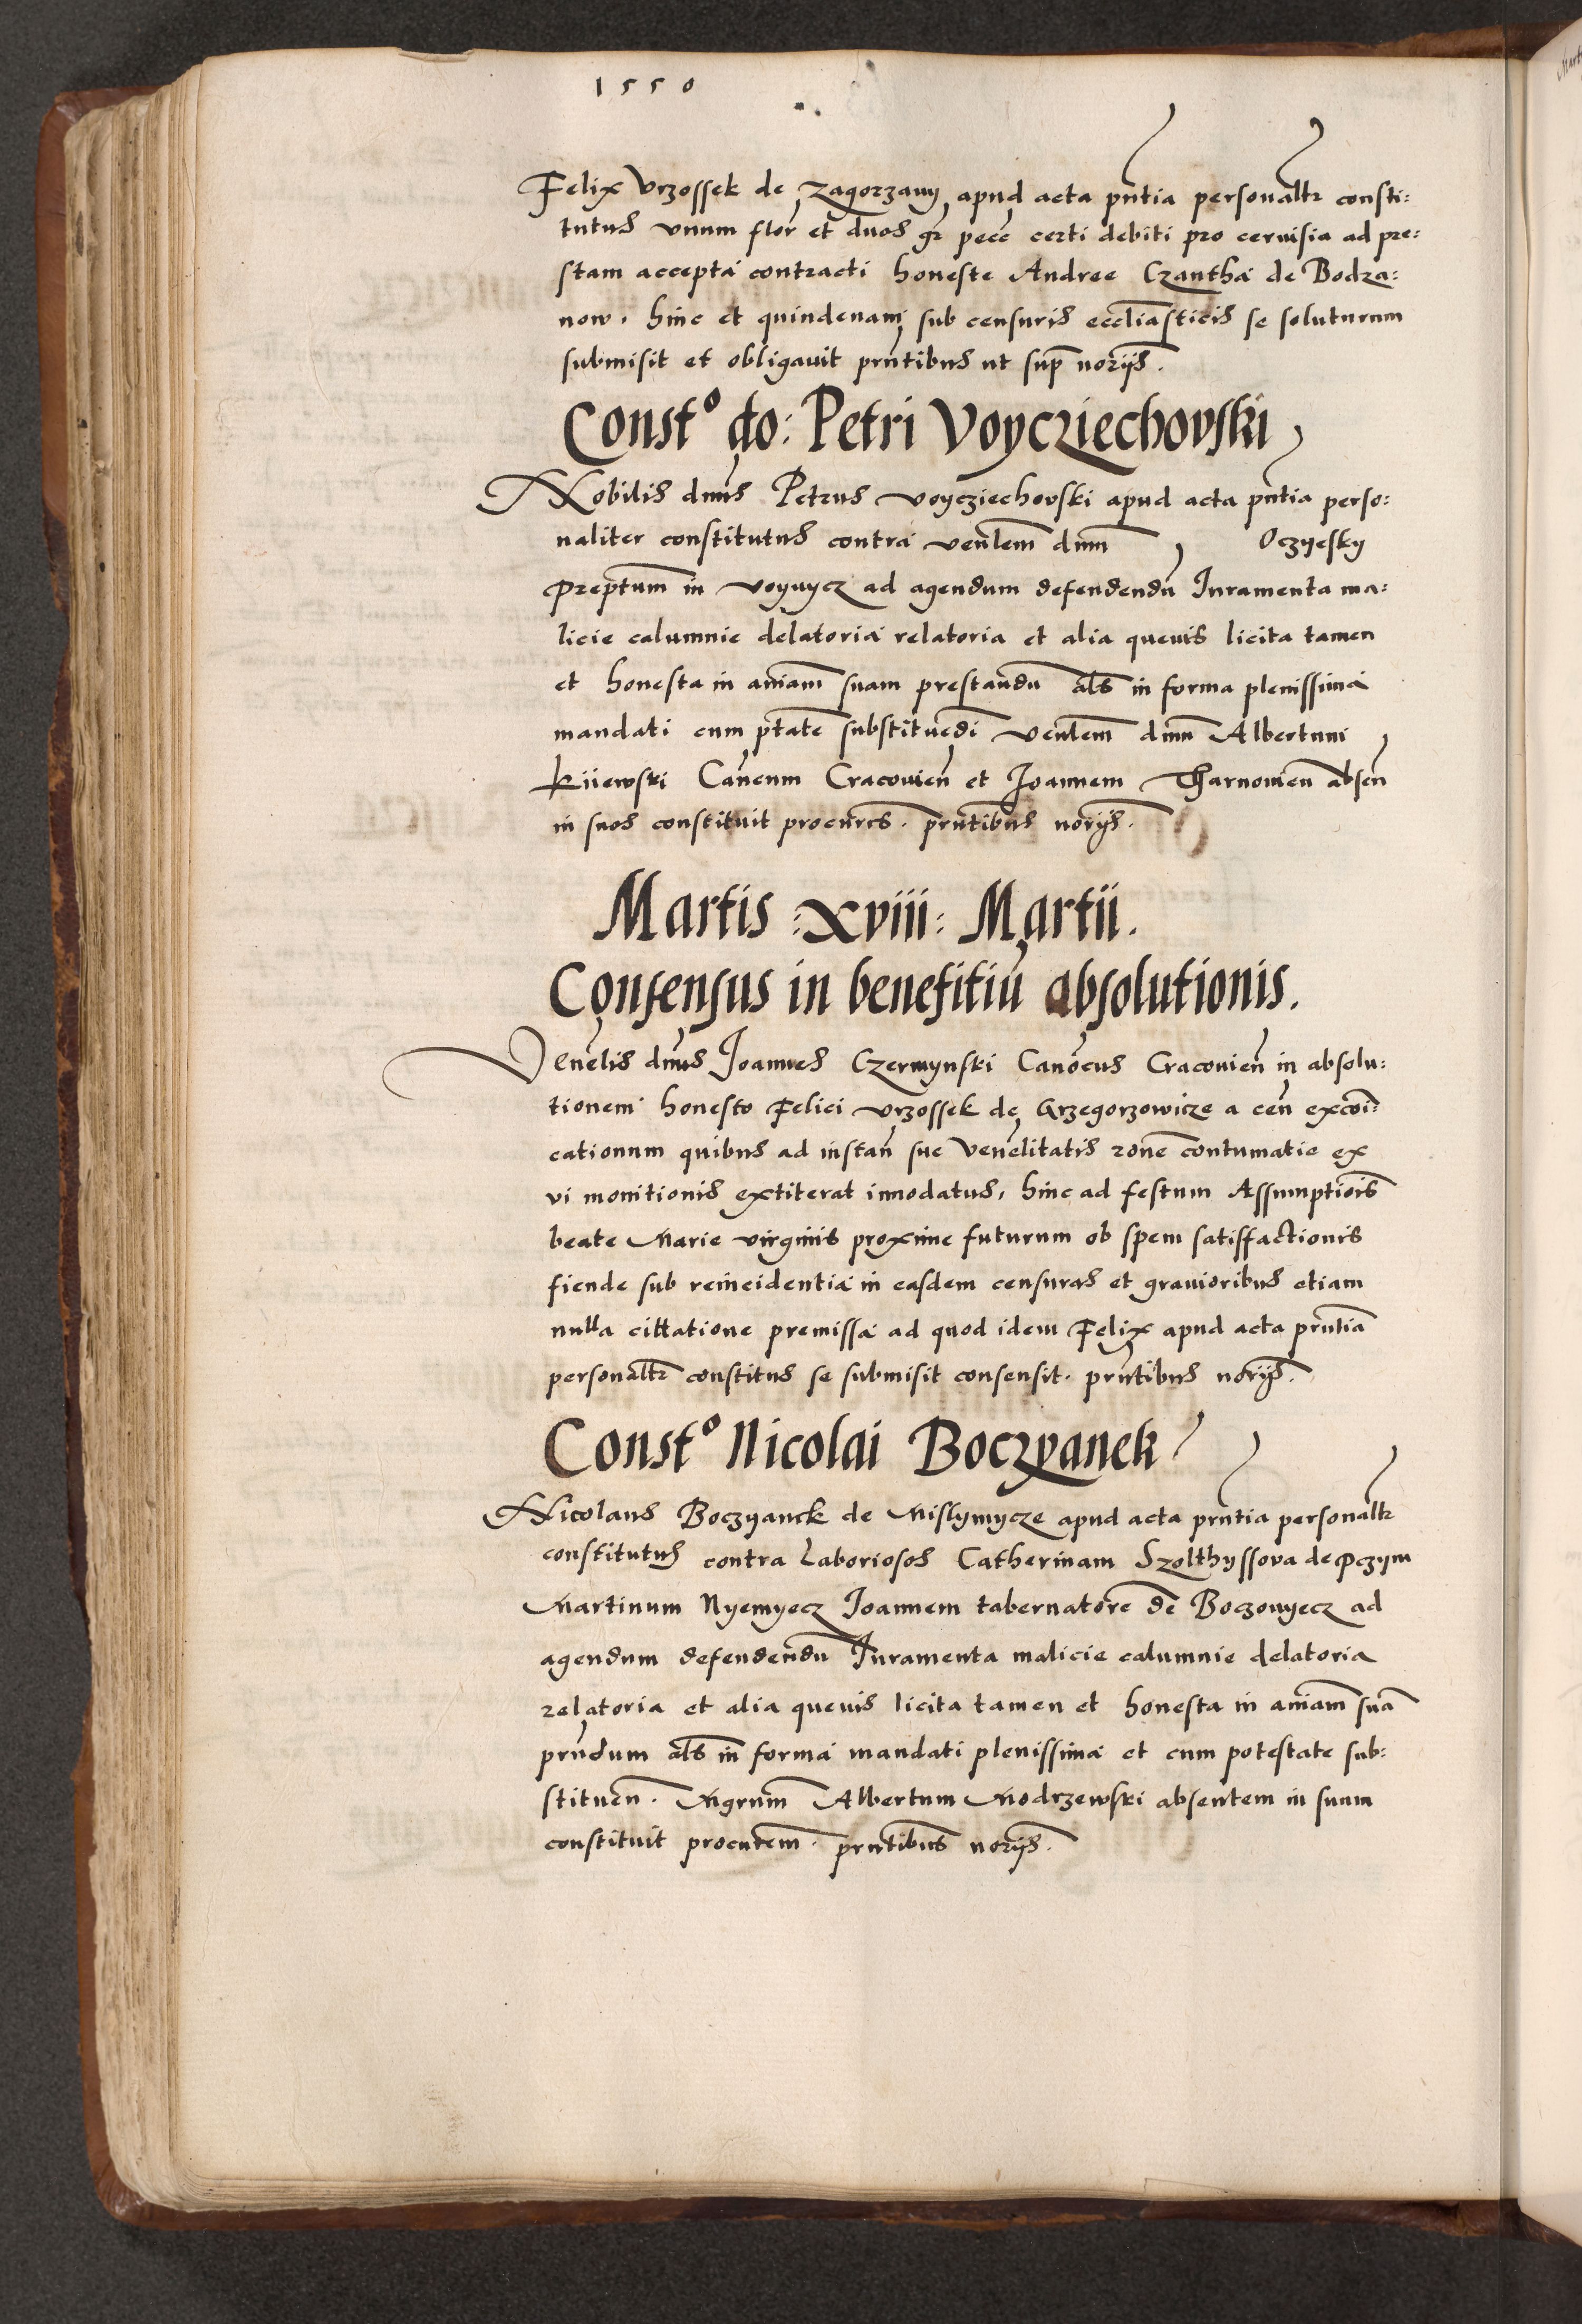 1550
Felix Vrzossek de Zagorzany apud acta pn̄tia personaltr consti:
tutus vnum flor et duos gr pecc certi debiti pro ceruisia ad pre:
stam accepta contracti honeste Andree Czantha de Bodza:
now, hinc et quindenam sub censuris eccliasticis se soluturum
submisit et obligauit prn̄tibus ut sup norijs.
Constº do: Petri Voycziechovski
Nobilis dnus Petrus voycziechovski apud acta pn̄tia perso:
naliter constitutus contra venlem dnm Oczyesky
preptum in voynycz ad agendum defendendū Iuramenta ma:
licie calumnie delatoria relatoria et alia quevis licita tamen
et honesta in aniam suam prestandū als in forma plenissima
mandati cum ptate substituēdi venlem dnm Albertum
kijewski Canćum Cracovień et Joannem Tharnovień abseń
in suos constituit procurćs. prn̄tibus norijs.
Martis :xviii: Martii.
Consensus in benefitiū absolutionis.
Venēlis dnus Joannes Czermynski Canōcus Cracovień in absolu:
tionem honesto Felici vrzossek de Grzegorzowicze a ceń excōi:
cationum quibus ad instań sue Venēlitatis rōne contumatie ex
vi monitionis extiterat innodatus, hinc ad festum Assumptiōis
beate Marie virginis proxime futurum ob spem satisfactionis
fiende sub reincidentia in easdem censuras et gravioribus etiam
nulla cittatione premissa ad quod idem Felix apud acta prn̄tia
personaltr constitus se submisit consensit. prn̄tibus norijs.
Constº Nicolai Boczyanek
Nicolaus Boczyanek de Mislymycze apud acta prn̄tia personaltr
constitutus contra Laboriosos Catherinam Szolthyssova de Pczym
Martinum Nyemyecz Joannem tabernatorē de Boczonyecz ad
agendum defendendū Iuramenta malicie calumnie delatoria
relatoria et alia quevis licita tamen et honesta in aniam suā
prńdum als in forma mandati plenissima et cum potestate sub:
stituēn. Mgrum Albertum Modrzewski absentem in suum
constituit procurem. prn̄tibus norijs.